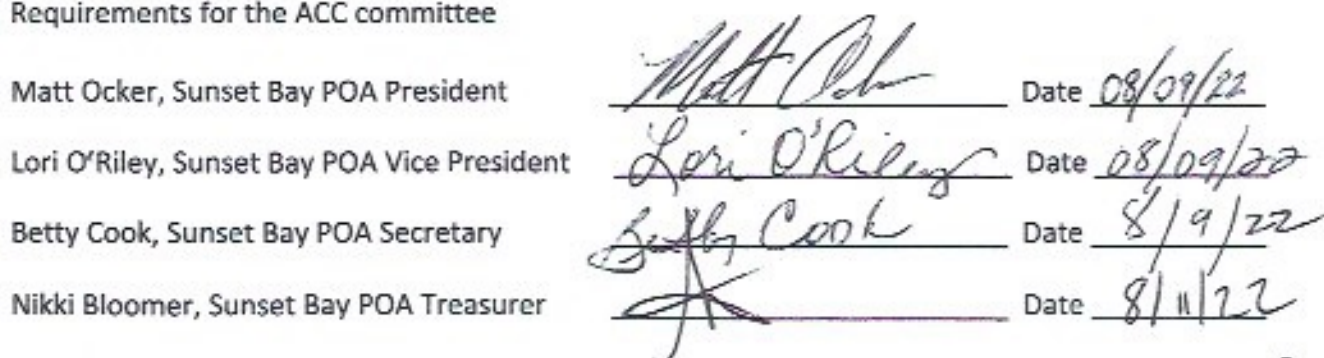 Requirements for the ACC committee
Matt Ocker, Sunset Bay POA President Matt Date 08/09/22
Lori O'Riley, Sunset Bay POA Vice President Lori O'Riley Date 08/09/22
Betty Cook, Sunset Bay POA Secretary Betty Cook Date 8/9/22
Nikki Bloomer, Sunset Bay POA Treasurer Date 8/11/22